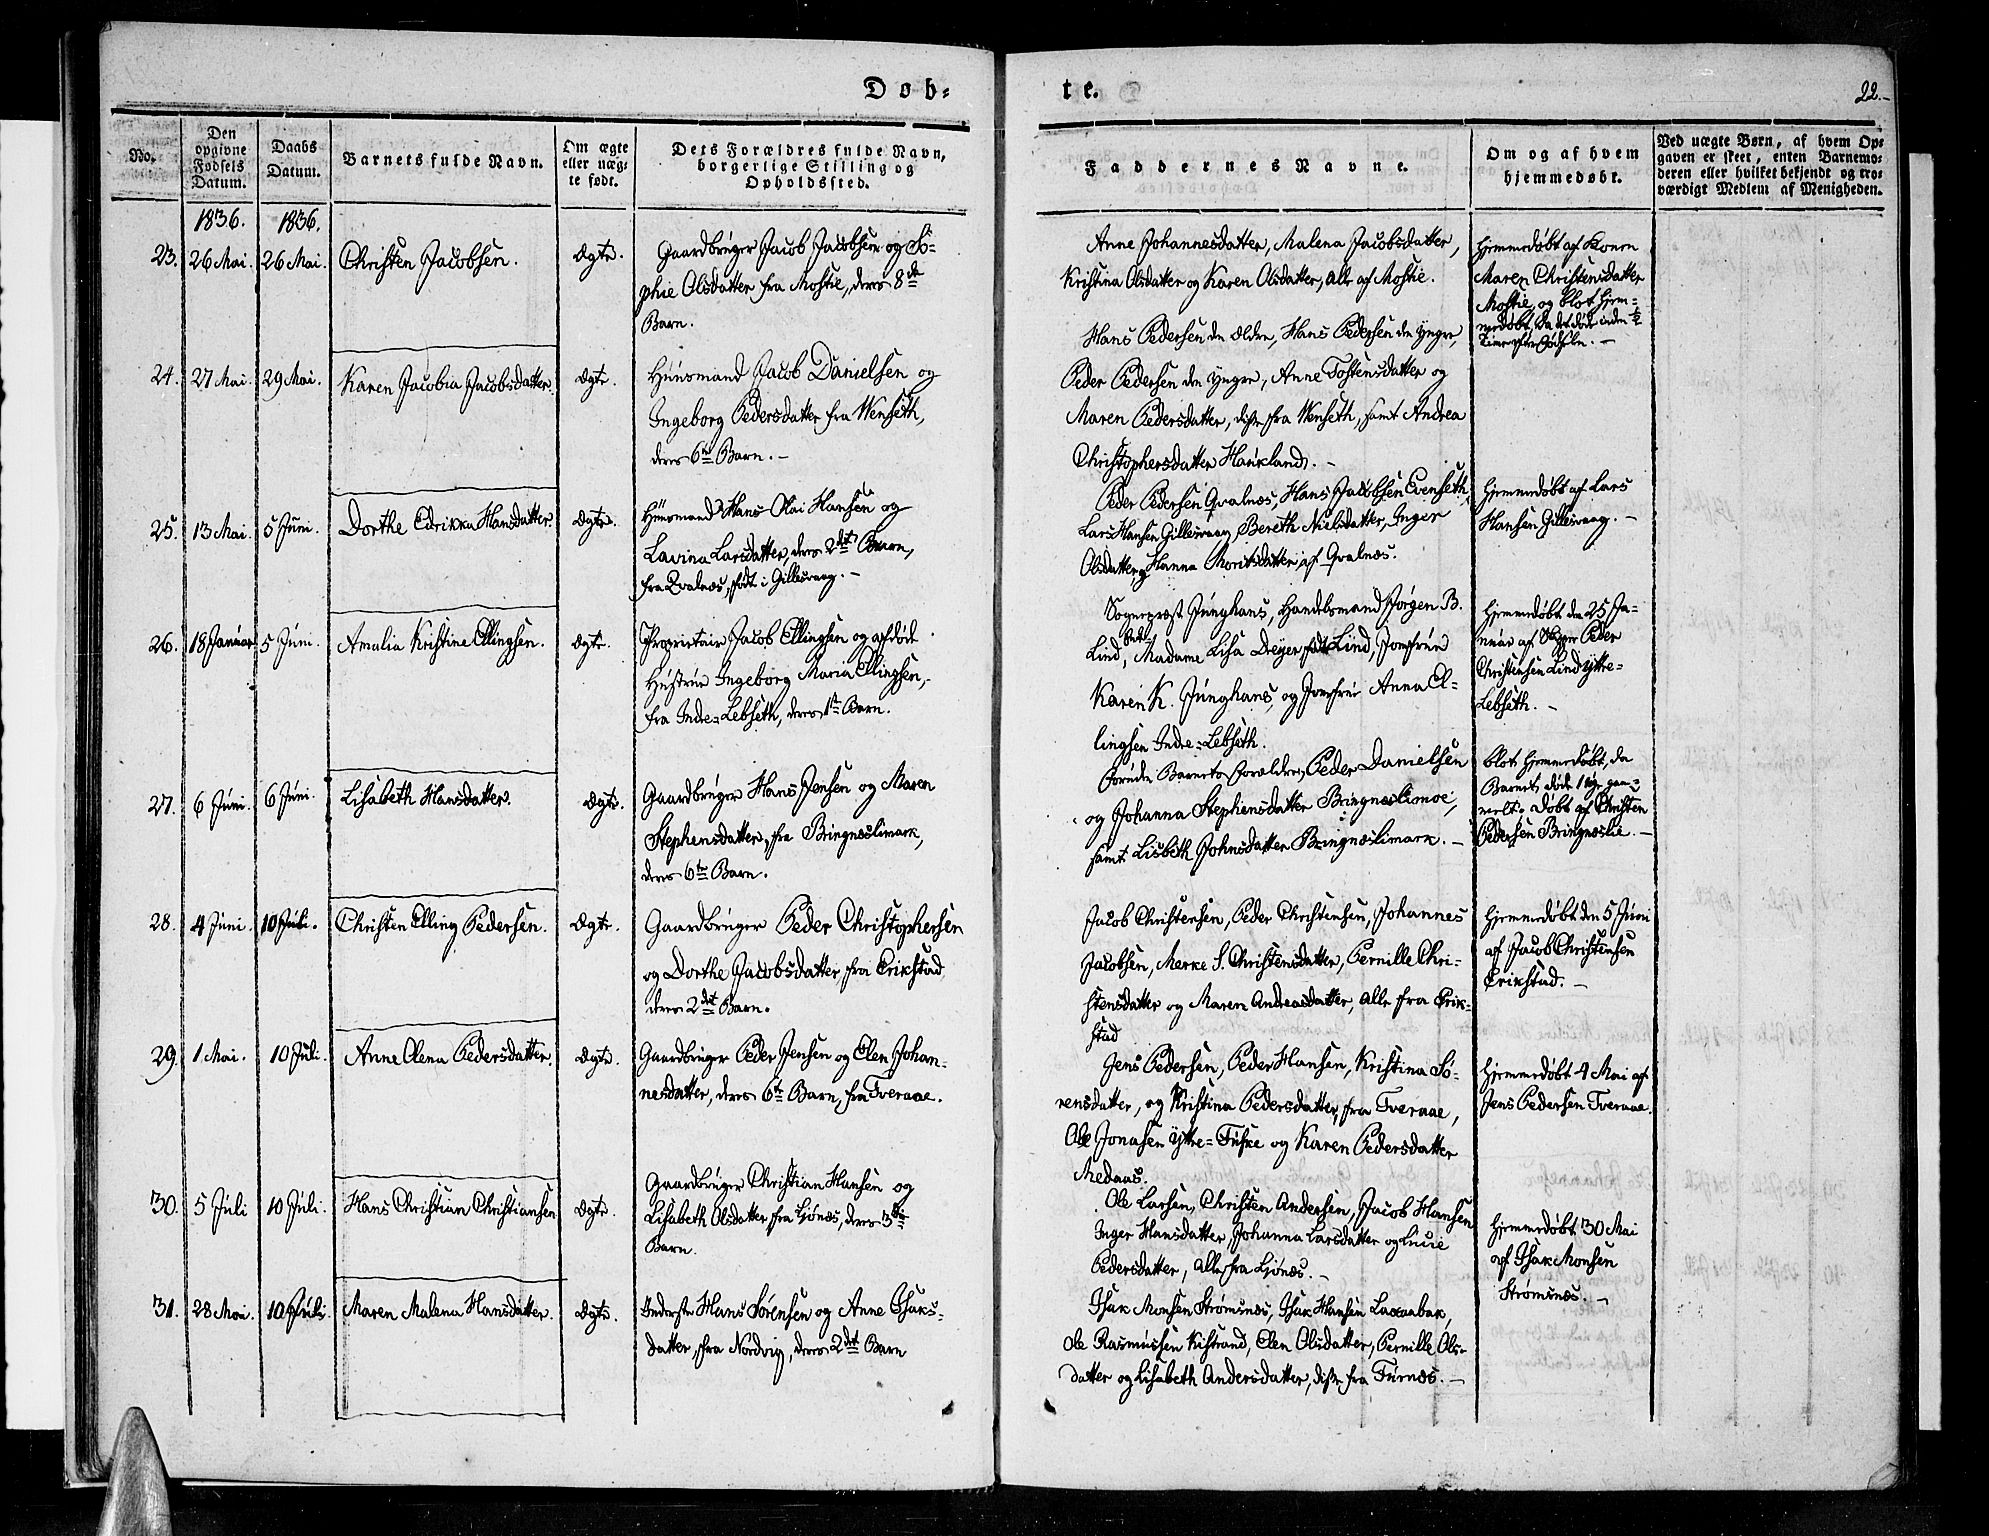 Døb-
te.
22.-
No.
Den opgivne Fødsels Datum.
Daabs Datum.
Barnets fulde Navn.
Om ægte eller uægte født.
Dets Forældres fulde Navn, borgerlige Stilling og Opholdssted.
Faddernes Navne.
Om og af hvem hjemmedøbt.
Ved uægte Børn, af hvem Opgaven er skeet, enten Barnemoderen eller hvilket bekjendt og troværdigt Medlem af Menigheden.
1836. 1836.
23. 26 Mai. 26 Mai. Christen Jacobsen. Ægte.
Gaardbruger Jacob Jacobsen og So-
phie Olsdatter fra Mostie, deres 8de
Barn.
Anne Johannesdatter, Malena Jacobsdatter,
Kristina Olsdatter og Karen Olsdatter, alle af Mostie.
hjemmedøbt af Konen
Maren Christensdatter
Mostie, og blot hjem-
medøbt, da det døde inden ½
Time efter Fødselen. -
24. 27 Mai. 29 Mai. Karen Jacobia Jacobsdatter. Ægte.
Huusmand Jacob Danielsen og
Ingeborg Pedersdatter fra Wenseth,
deres 6te Barn. -
Hans Pedersen den Ældre, Hans Pedersen den Yngre,
Peder Pedersen den Yngre, Anne Tostensdatter og
Maren Pedersdatter, disse fra Wenseth, samt Andrea
Christophersdatter Haukland. -
25. 13 Mai. 5 Juni. Dorthe Edrikka Hansdatter. Ægte.
Huusmand Hans Olai Hansen og
Lavina Larsdatter, deres 2det Barn,
fra Qvalnæs, født i Gillesvaag. -
Peder Pedersen Qvalnæs, Hans Jacobsen Evenseth,
Lars Hansen Gillesvaag, Bereth Nielsdatter, Inger
Olsdatter og Hanna Moritsdatter af Qvalnæs.
hjemmedøbt af Lars
Hansen Gillesvaag. -
26. 18 Januar. 5 Juni. Amalia Kristine Ellingsen. Ægte.
Proprietair Jacob Ellingsen og afdøde
Hustrue Ingeborg Maria Ellingsen,
fra Indre-Lebseth, deres 1te Barn.
Sognepræst Junghans, Handelsmand Jørgen B.
Lind, Madame Lisa Dreyer født Lind, Jomfrue
Karen K. Junghans, og Jomfrue Anna El-
lingsen Indre-Lebseth.
hjemmedøbt den 25 Ja-
nuar af Peder
Christensen Lind Yttre-
Lebseth. -
27. 6 Juni. 6 Juni. Lisabeth Hansdatter. Ægte.
Gaardbruger Hans Jensen og Maren
Stephensdatter, fra Bringnæslimark,
deres 6te Barn.
Foruden Barnets Forældre, Peder Danielsen
og Johanna Stephensdatter Bringneslimoe,
samt Lisbeth Johnsdatter Bringnæslimark. -
blot hjemmedøbt, da
Barnet døde 1 Uge gam-
melt; døbt af Christen
Pedersen Bringnæslie. -
28. 4 Juni. 10 Juli. Christen Elling Pedersen. Ægte.
Gaardbruger Peder Christophersen
og Dorthe Jacobsdatter, fra Erikstad,
deres 2det Barn.
Jacob Christensen, Peder Christensen, Johannes
Jacobsen, Merke S. Christensdatter, Pernille Chri-
stensdatter og Maren Andreasdatter, alle fra Erik-
stad
hjemmedøbt den 5 Juni
af Jacob Christensen
Erikstad. -
29. 1 Mai. 10 Juli. Anne Elena Pedersdatter. Ægte.
Gaardbruger Peder Jensen og Elen Johan-
nesdatter, deres 6te Barn, fra Tveraae.
Jens Pedersen, Peder Hansen, Kristina Sø-
rensdatter, og Kristina Pedersdatter, fra Tveraae,
Ole Jonasen Yttre-Fuske og Karen Pedersdatter
Medaas.
hjemmedøbt 4 Mai af
Jens Pedersen Tveraae.
30. 5 Juli 10 Juli. Hans Christian Christiansen Ægte.
Gaardbruger Christian Hansen og
Lisabeth Olsdatter, fra Ljønæs, deres 3die
Barn.
Ole Larsen, Christen Andersen, Jacob Hansen
Inger Hansdatter, Johanna Larsdatter og Lucie
Pedersdatter, alle fra Ljønæs. -
hjemmedøbt 30 Mai
af Isak Monsen
Strømsnæs. -
31. 28 Mai. 10 Juli. Maren Malena Hansdatter. Ægte.
Inderste Hans Sørensen og Anne Isaks-
datter, fra Nordvig, deres 2det Barn
Isak Monsen Strømsnæs, Isak Hansen Laxaabak,
Ole Rasmussen Kistrand, Elen Olsdatter, Pernille Ols-
datter og Lisabeth Andersdatter, disse fra Furnæs. -